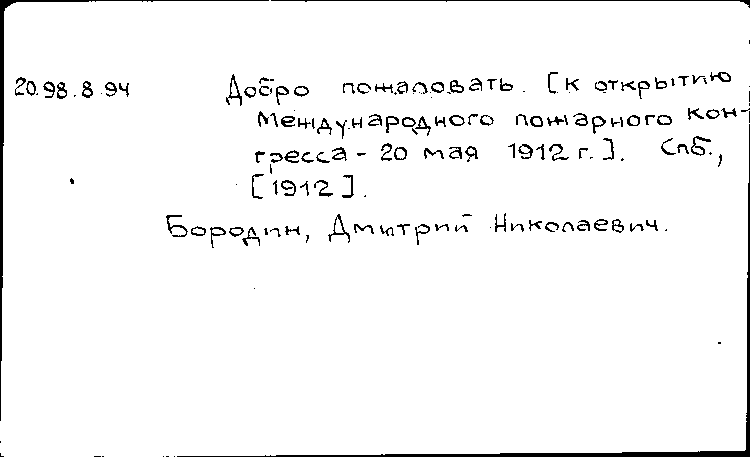 20.98.8.94 Добро пожаловать. [К открытию
Международного пожарного кон-
гресса - 20 мая 1912 г.]. Спб.,
[1912].
Бородин, Дмитрий Николаевич.